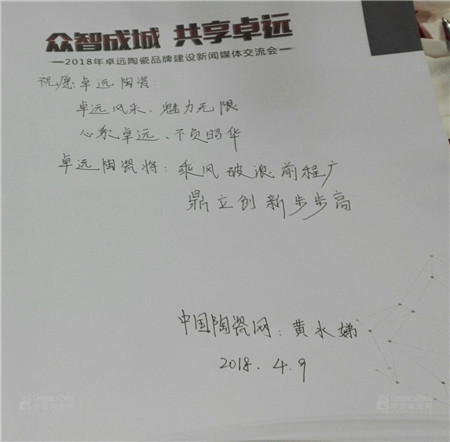 众智成城 共享卓远
2018年卓远陶瓷品牌建设新闻媒体交流会
祝愿卓远陶瓷:
卓远风采、魅力无限
心系卓远、不负韶华
卓远陶瓷将:乘风破浪前程广
鼎立创新步步高
中国陶瓷网:黄水娣
2018.4.9